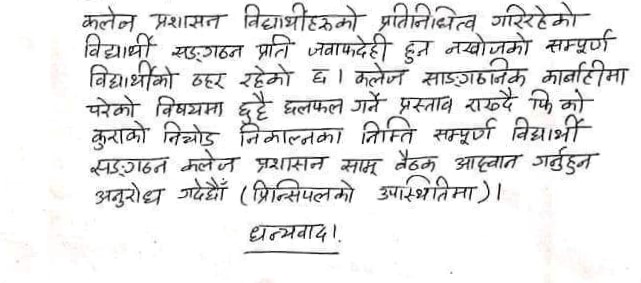 कलेज प्रशासन विद्यार्थीहरूको प्रतिनिधित्व गरिरहेको
विद्यार्थी सङ्गठन प्रति जवाफदेही हुन नखोजको सम्पूर्ण
विद्यार्थीको ठहर रहेको छ। कलेज साङ्गठनिक कार्बाहीमा
परेको विषयमा छुट्टै छलफल गर्ने प्रस्ताव राख्दै फि को
कुराको निचोड निकाल्नका निम्ति सम्पूर्ण विद्यार्थी
सङ्गठन कलेज प्रशासन सामू बैठक आह्वान गर्नुहुन
अनुरोध गर्दछौँ (प्रिन्सिपलको उपास्थितिमा)।
धन्यवाद।